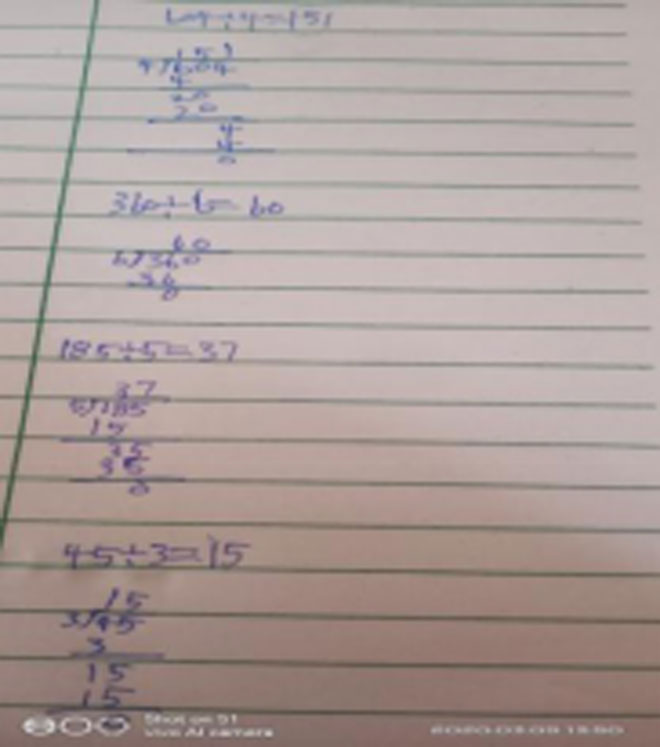 604÷4=151
151
4)604
4
20
20
4
4
0
360÷6=60
60
6)360
36
0
185÷5=37
37
5)185
15
35
35
0
45÷3=15
15
3)45
3
15
15
0
Shot on S1
Vivo AI camera